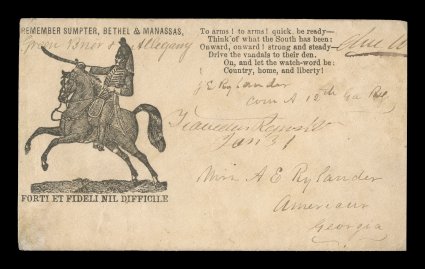 REMEMBER SUMPTER, BETHEL & MANASSAS,
From Allegany
To arms! to arms! quick, be ready—
Think of what the South has been:
Onward, onward! strong and steady—
Drive the vandals to their den.
On, and let the watch-word be:
Country, home, and liberty!
J E Rylander
Com A 12th Ga Reg
Jan 31
Miss A E Rylander
Americus
Georgia
FORTI ET FIDELI NIL DIFFICILE